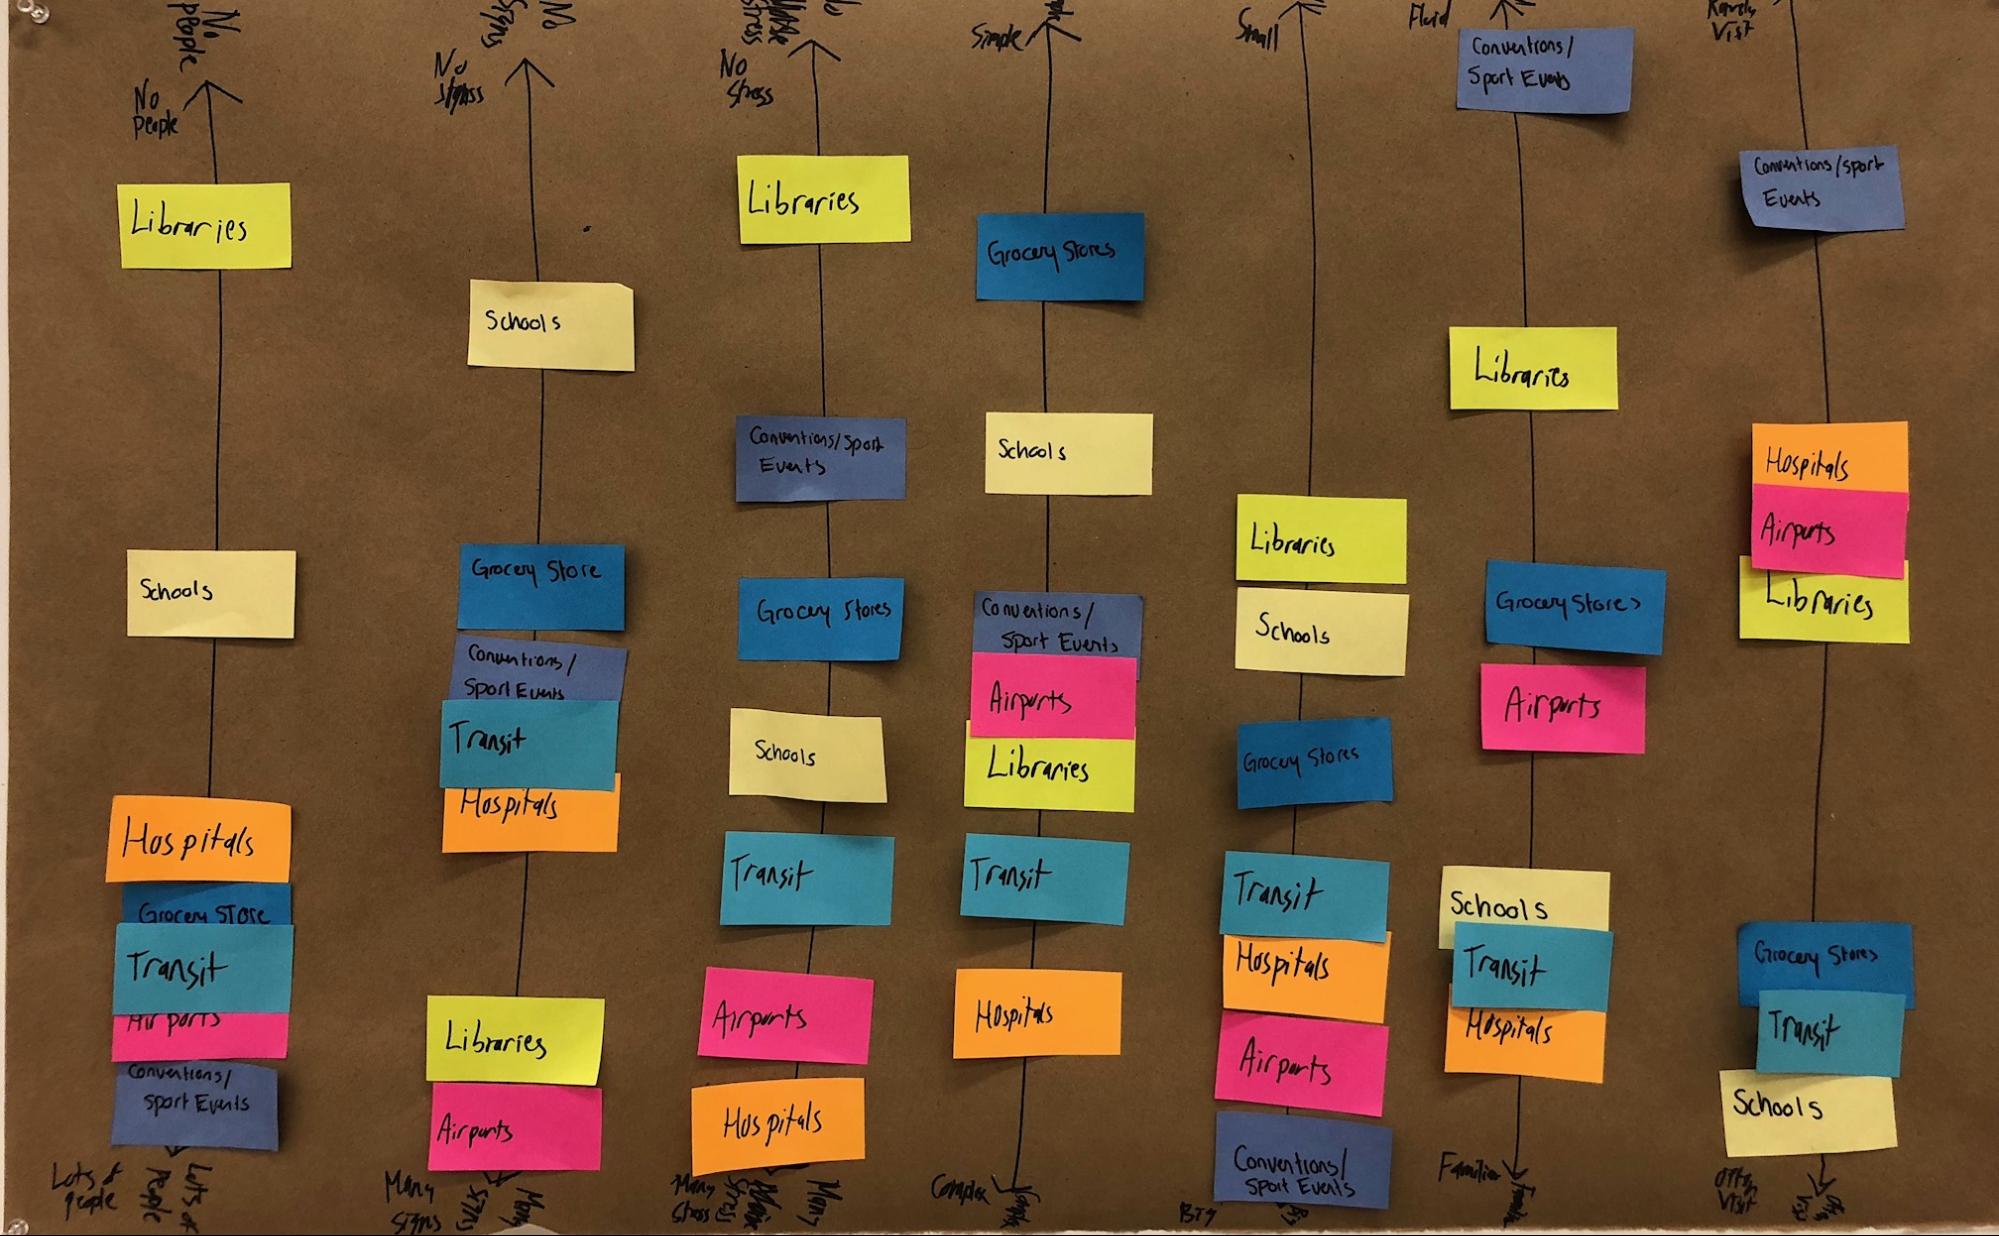 No
people
No
people
Libraries
Schools
Hospitals
Grocery Store
Transit
Airports
Conventions/
Sport Events
Lots of
people
Lots of
People
No
Signs
No
Schools
Grocery Store
Conventions/
Sport Events
Transit
Hospitals
Libraries
Airports
Many
Signs
Many
Signs
Stress
No
Stress
Libraries
Conventions/Sport
Events
Grocery Stores
Schools
Transit
Airports
Hospitals
Many
Stress
Many
Stress
Simple
Grocery Stores
Schools
Conventions/
Sport Events
Airports
Libraries
Transit
Hospitals
Complex
Small
Libraries
Schools
Grocery Stores
Transit
Hospitals
Airports
Conventions/
Sport Events
Big
Fluid
Conventions/
Sport Events
Libraries
Grocery Stores
Airports
Schools
Transit
Hospitals
Familiar
Visit
Conventions/sport
Events
Hospitals
Airports
Libraries
Grocery Stores
Transit
Schools
Often
Visit